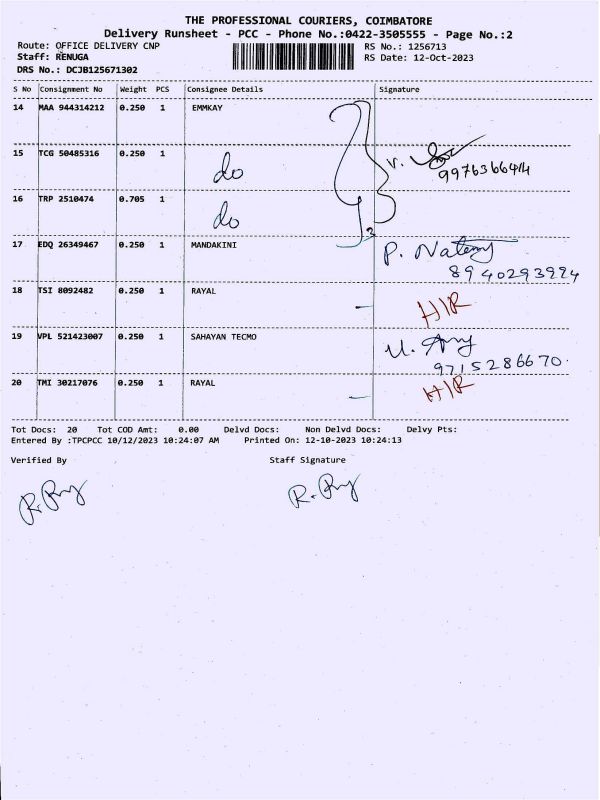 THE PROFESSIONAL COURIERS, COIMBATORE
Delivery Runsheet - PCC - Phone No.:0422-3505555 - Page No.:2
Route: OFFICE DELIVERY CNP RS No.: 1256713
Staff: RENUGA RS Date: 12-Oct-2023
DRS No.: DCJB125671302
S No Consignment No Weight PCS Consignee Details Signature
14 MAA 944314212 0.250 1 EMMKAY
15 TCG 50485316 0.250 1 do V.
9976366414
16 TRP 2510474 0.705 1 do
3
17 EDQ 26349467 0.250 1 MANDAKINI P.
8940293924
18 TSI 8092482 0.250 1 RAYAL - H/R
19 VPL 521423007 0.250 1 SAHAYAN TECMO U.
9715286670.
20 TMI 30217076 0.250 1 RAYAL - H/R
Tot Docs: 20 Tot COD Amt: 0.00 Delvd Docs: Non Delvd Docs: Delvy Pts:
Entered By :TPCPCC 10/12/2023 10:24:07 AM Printed On: 12-10-2023 10:24:13
Verified By Staff Signature